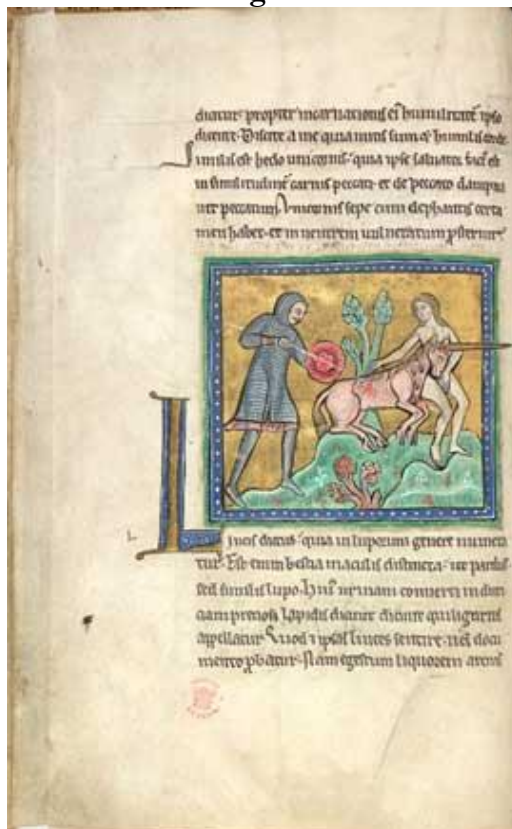 g
dicitur propter incarnationis ei humilitatē ipso
dicente Discite a me quia mitis sum & humilis corde
Similis est hedo unicornis quia ipse saluator factus est
in similitudinē carnis peccati et de peccato dampna
uit peccatum Vnicornis sepe cum elephantis certa
men habet et in uentrem uulneratum psternit
L incis dictus quia in luporum genere numera
tur Est enim bestia maculis distincta ut pardus
sed similis lupo hui' urinam conuerti in duri
ciam preciosi lapidis dicunt
appellatur Quod & ipsas linces sentire
mento pbatur Nam egestum liquorem